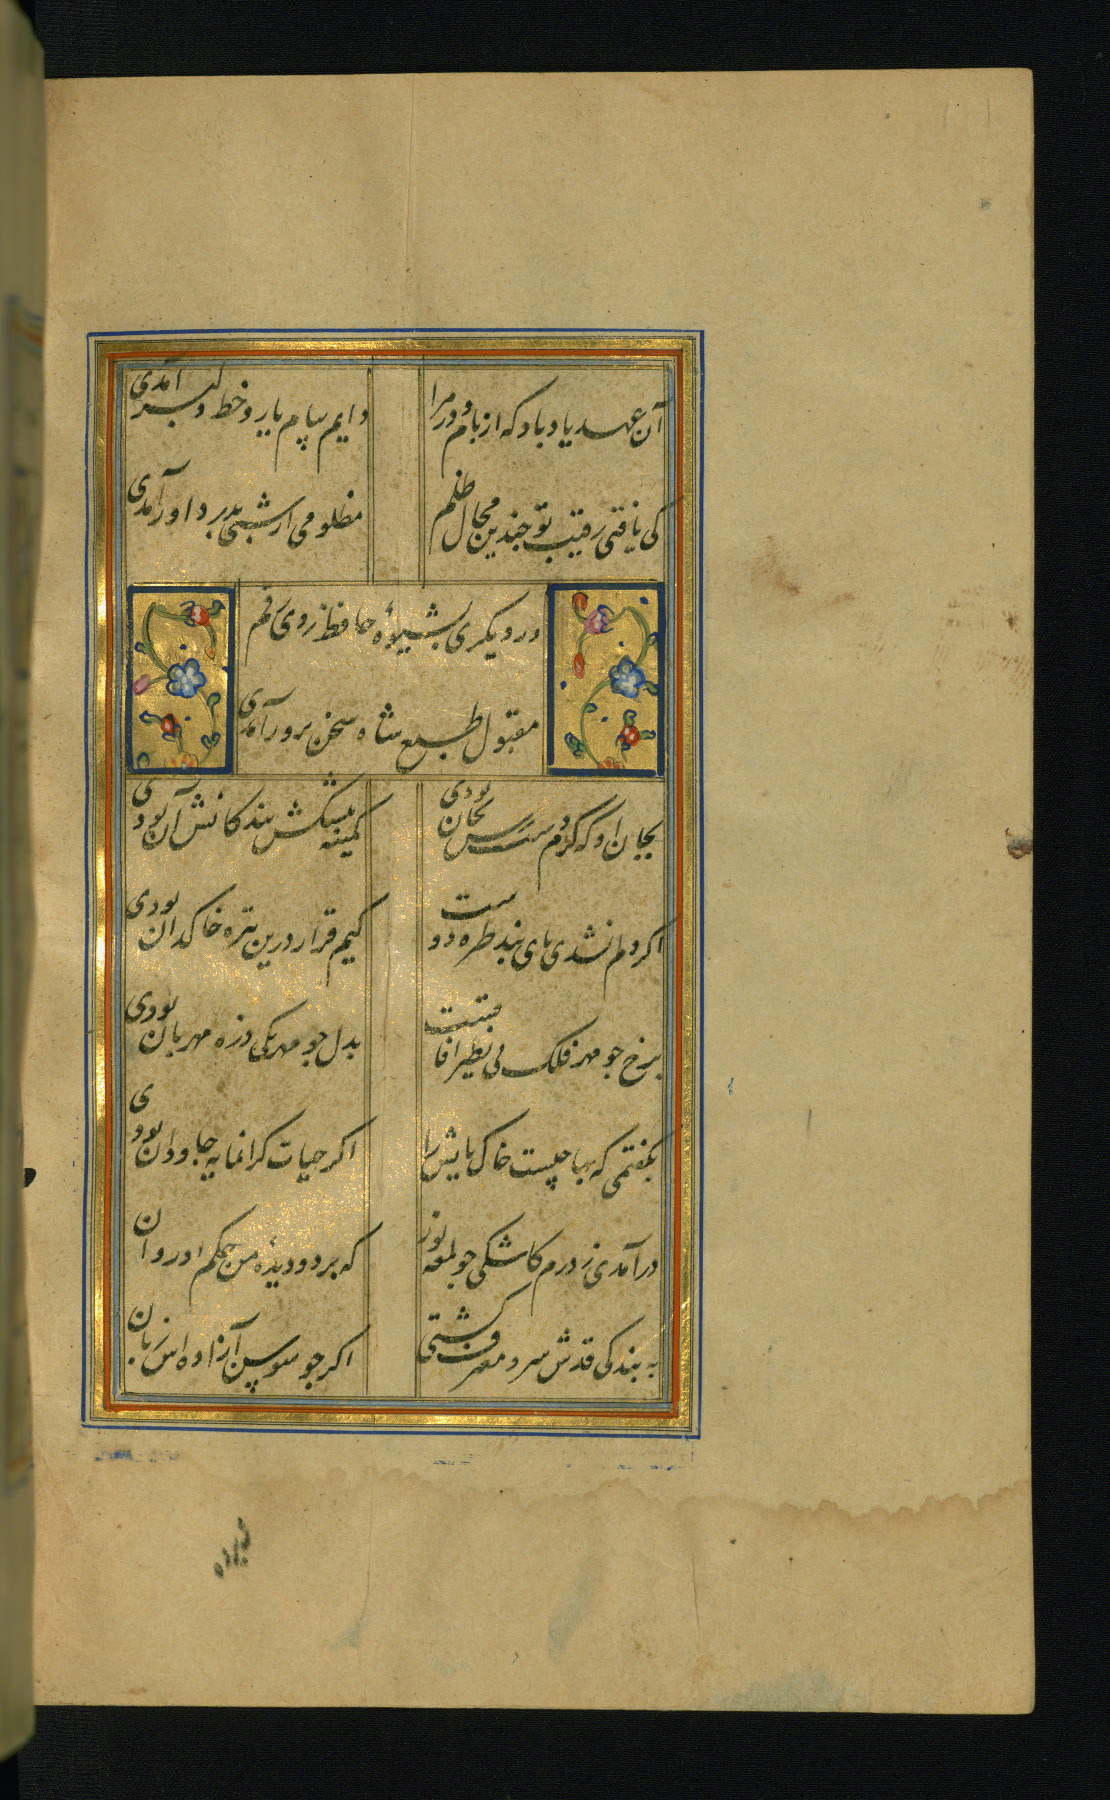 آن عهد یاد باد که از بام و در مرا
دایم پیام یار و خط دلبر آمدی
کی یافتی رقیب تو چندین مجال ظلم
مظلومی ار شبی بدر داور آمدی
ور دیگری بشیوهٔ حافظ زدی رقم
مقبول طبع شاه سخن پرور آمدی
بجان او که گرم دسترس بجان بودی
کمینه پیشکش بندگانش آن بودی
اگر دلم نشدی پای بند طره دوست
کیم قرار درین تیره خاکدان بودی
برخ چو مهر فلک بی نظیر آفاقست
بدل چو مهر یکی ذره مهربان بودی
بگفتمی که بها چیست خاک پایش را
اگر حیات گرانمایه جاودان بودی
درآمدی ز درم کاشکی چو لمعه نور
که بر دو دیدهٔ من حکم او روان
به بندگی قدش سرو معترف گشتی
اگر چو سوسن آزاده اش زبان